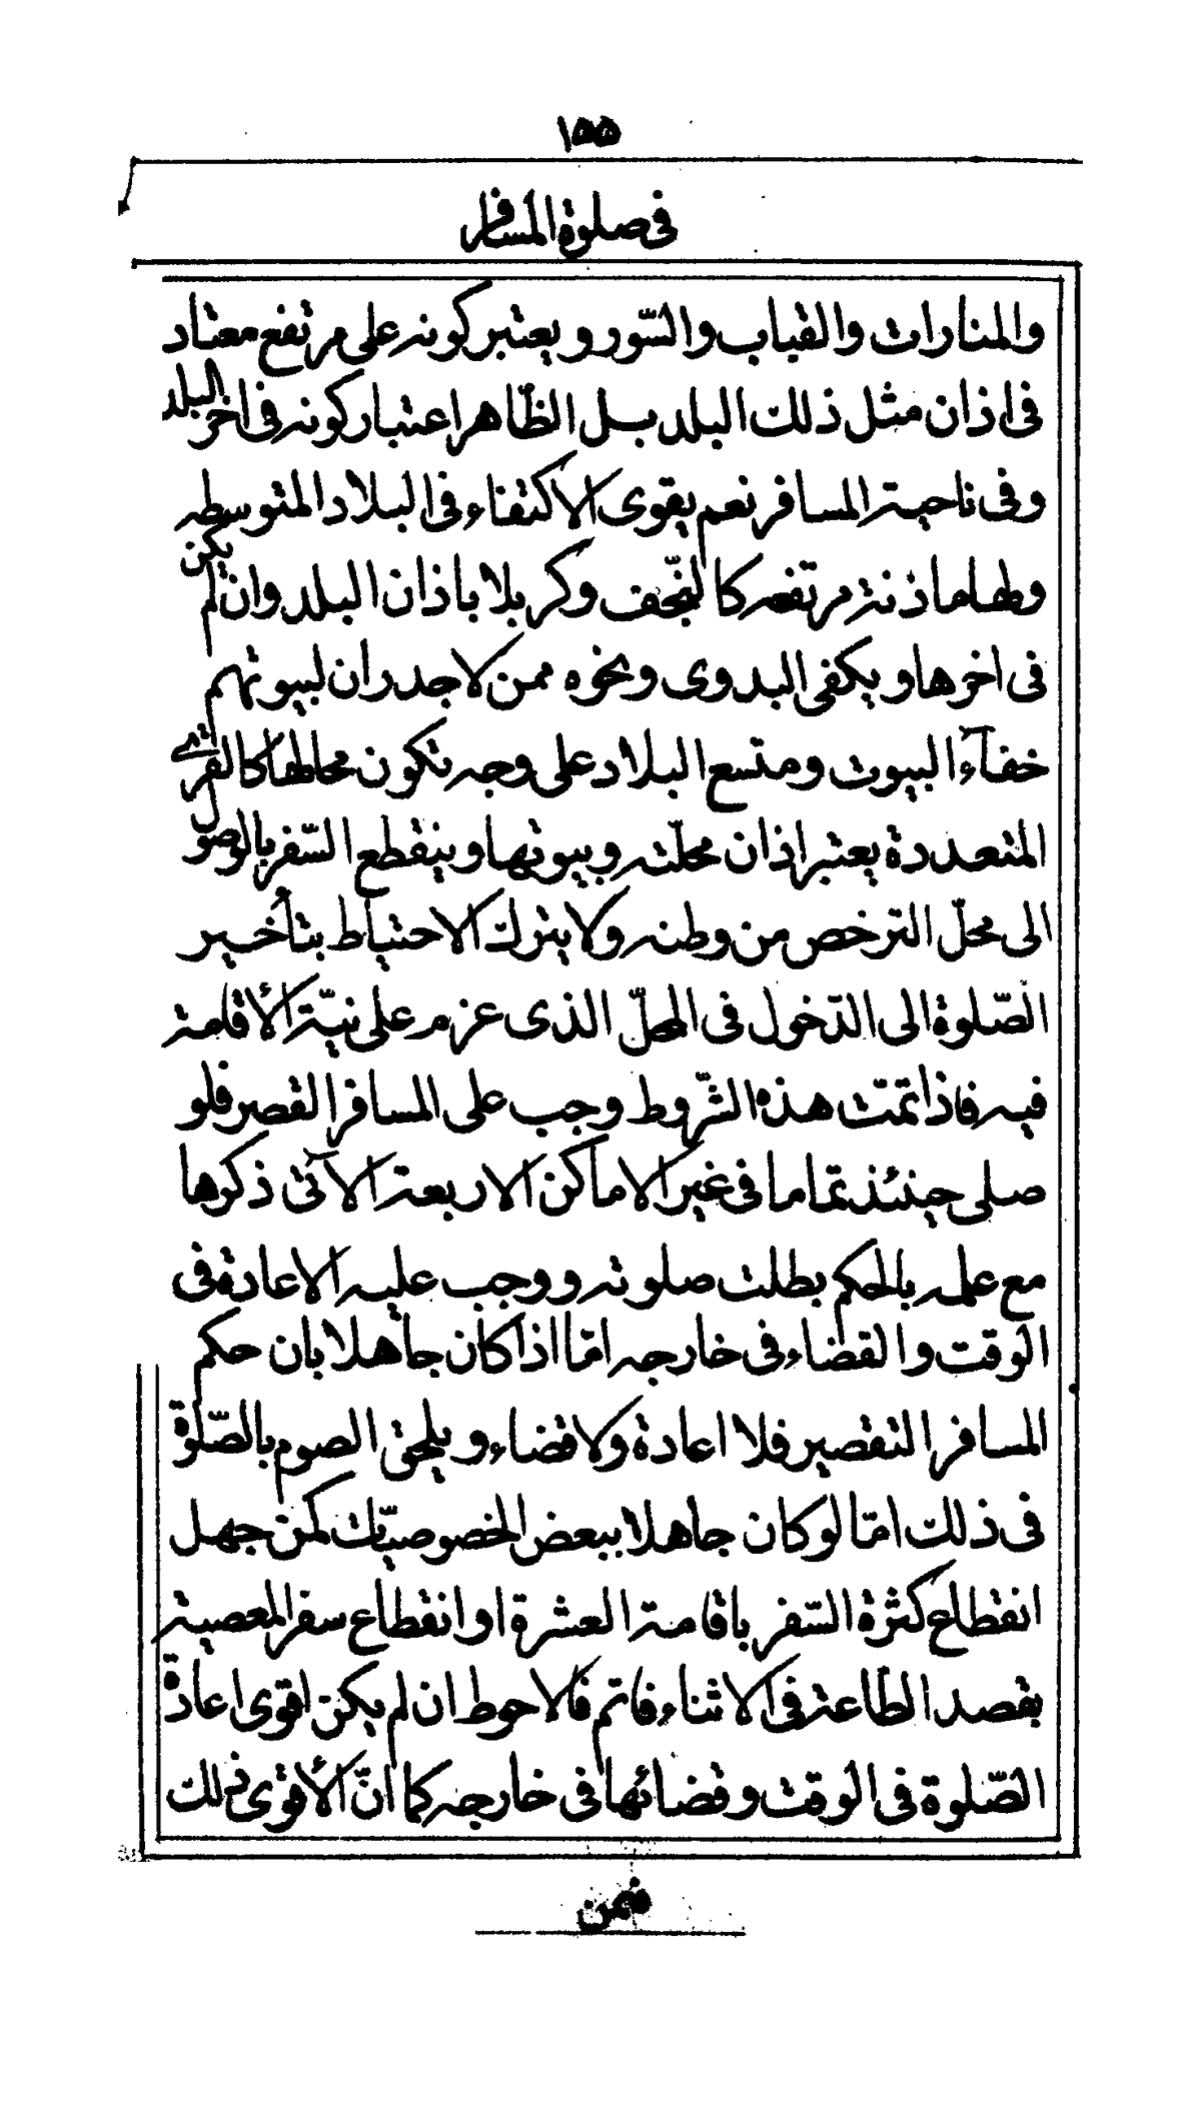 ١٥٥
فى صلوة المسافر
والمنارات والقباب والسّور ويعتبر كونه على مرتفع معتاد
فى اذان مثل ذلك البلد بل الظّاهر اعتبار كونه فى اخر البلد
وفى ناحية المسافر نعم يقوى الاكتفاء فى البلاد المتوسطه
ولها ماذنة مرتفعه كالنّجف وكربلا باذان البلد وان لم يكن
فى اخرها ويكفى البدوى ونحوه ممن لا جدران لبيوتهم
خفآء البيوت ومتسع البلاد على وجه تكون محالها كالقرى
المتعددة يعتبر اذان محلّته وبيوتها وينقطع السّفر بالوصول
الى محلّ الترخص من وطنه ولا يترك الاحتياط بتأخير
الصّلوة الى الدّخول فى المحلّ الذى عزم على نيّة الأقامة
فيه فاذا تمّت هذه الشّروط وجب على المسافر القصر فلو
صلى حينئذ تماما فى غير الاماكن الاربعة الآتى ذكرها
مع علمه بالحكم بطلت صلوته ووجب عليه الاعادة فى
الوقت والقضاء فى خارجه امّا اذا كان جاهلا بان حكم
المسافر التقصير فلا اعادة ولا قضاء ويلحق الصوم بالصّلوة
فى ذلك امّا لو كان جاهلا ببعض الخصوصيّات كمن جهل
انقطاع كثرة السّفر باقامة العشرة او انقطاع سفر المعصية
بقصد الطّاعة فى الاثناء فاتم فالاحوط ان لم يكن اقوى اعادة
الصّلوة فى الوقت وقضائها فى خارجه كما انّ الأقوى ذلك
فيمن